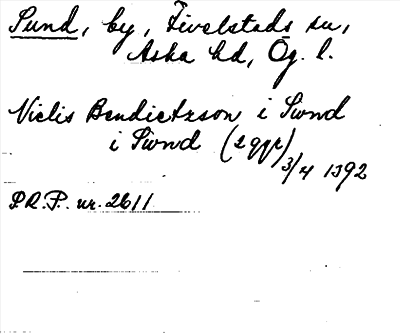 Sund, by, Fivelstads sn,
Aska hd, Ög. l.
Niclis Bendictzson i Swnd
i Swnd (2 ggr) 3/4 1392
P.R.P. nr. 2611